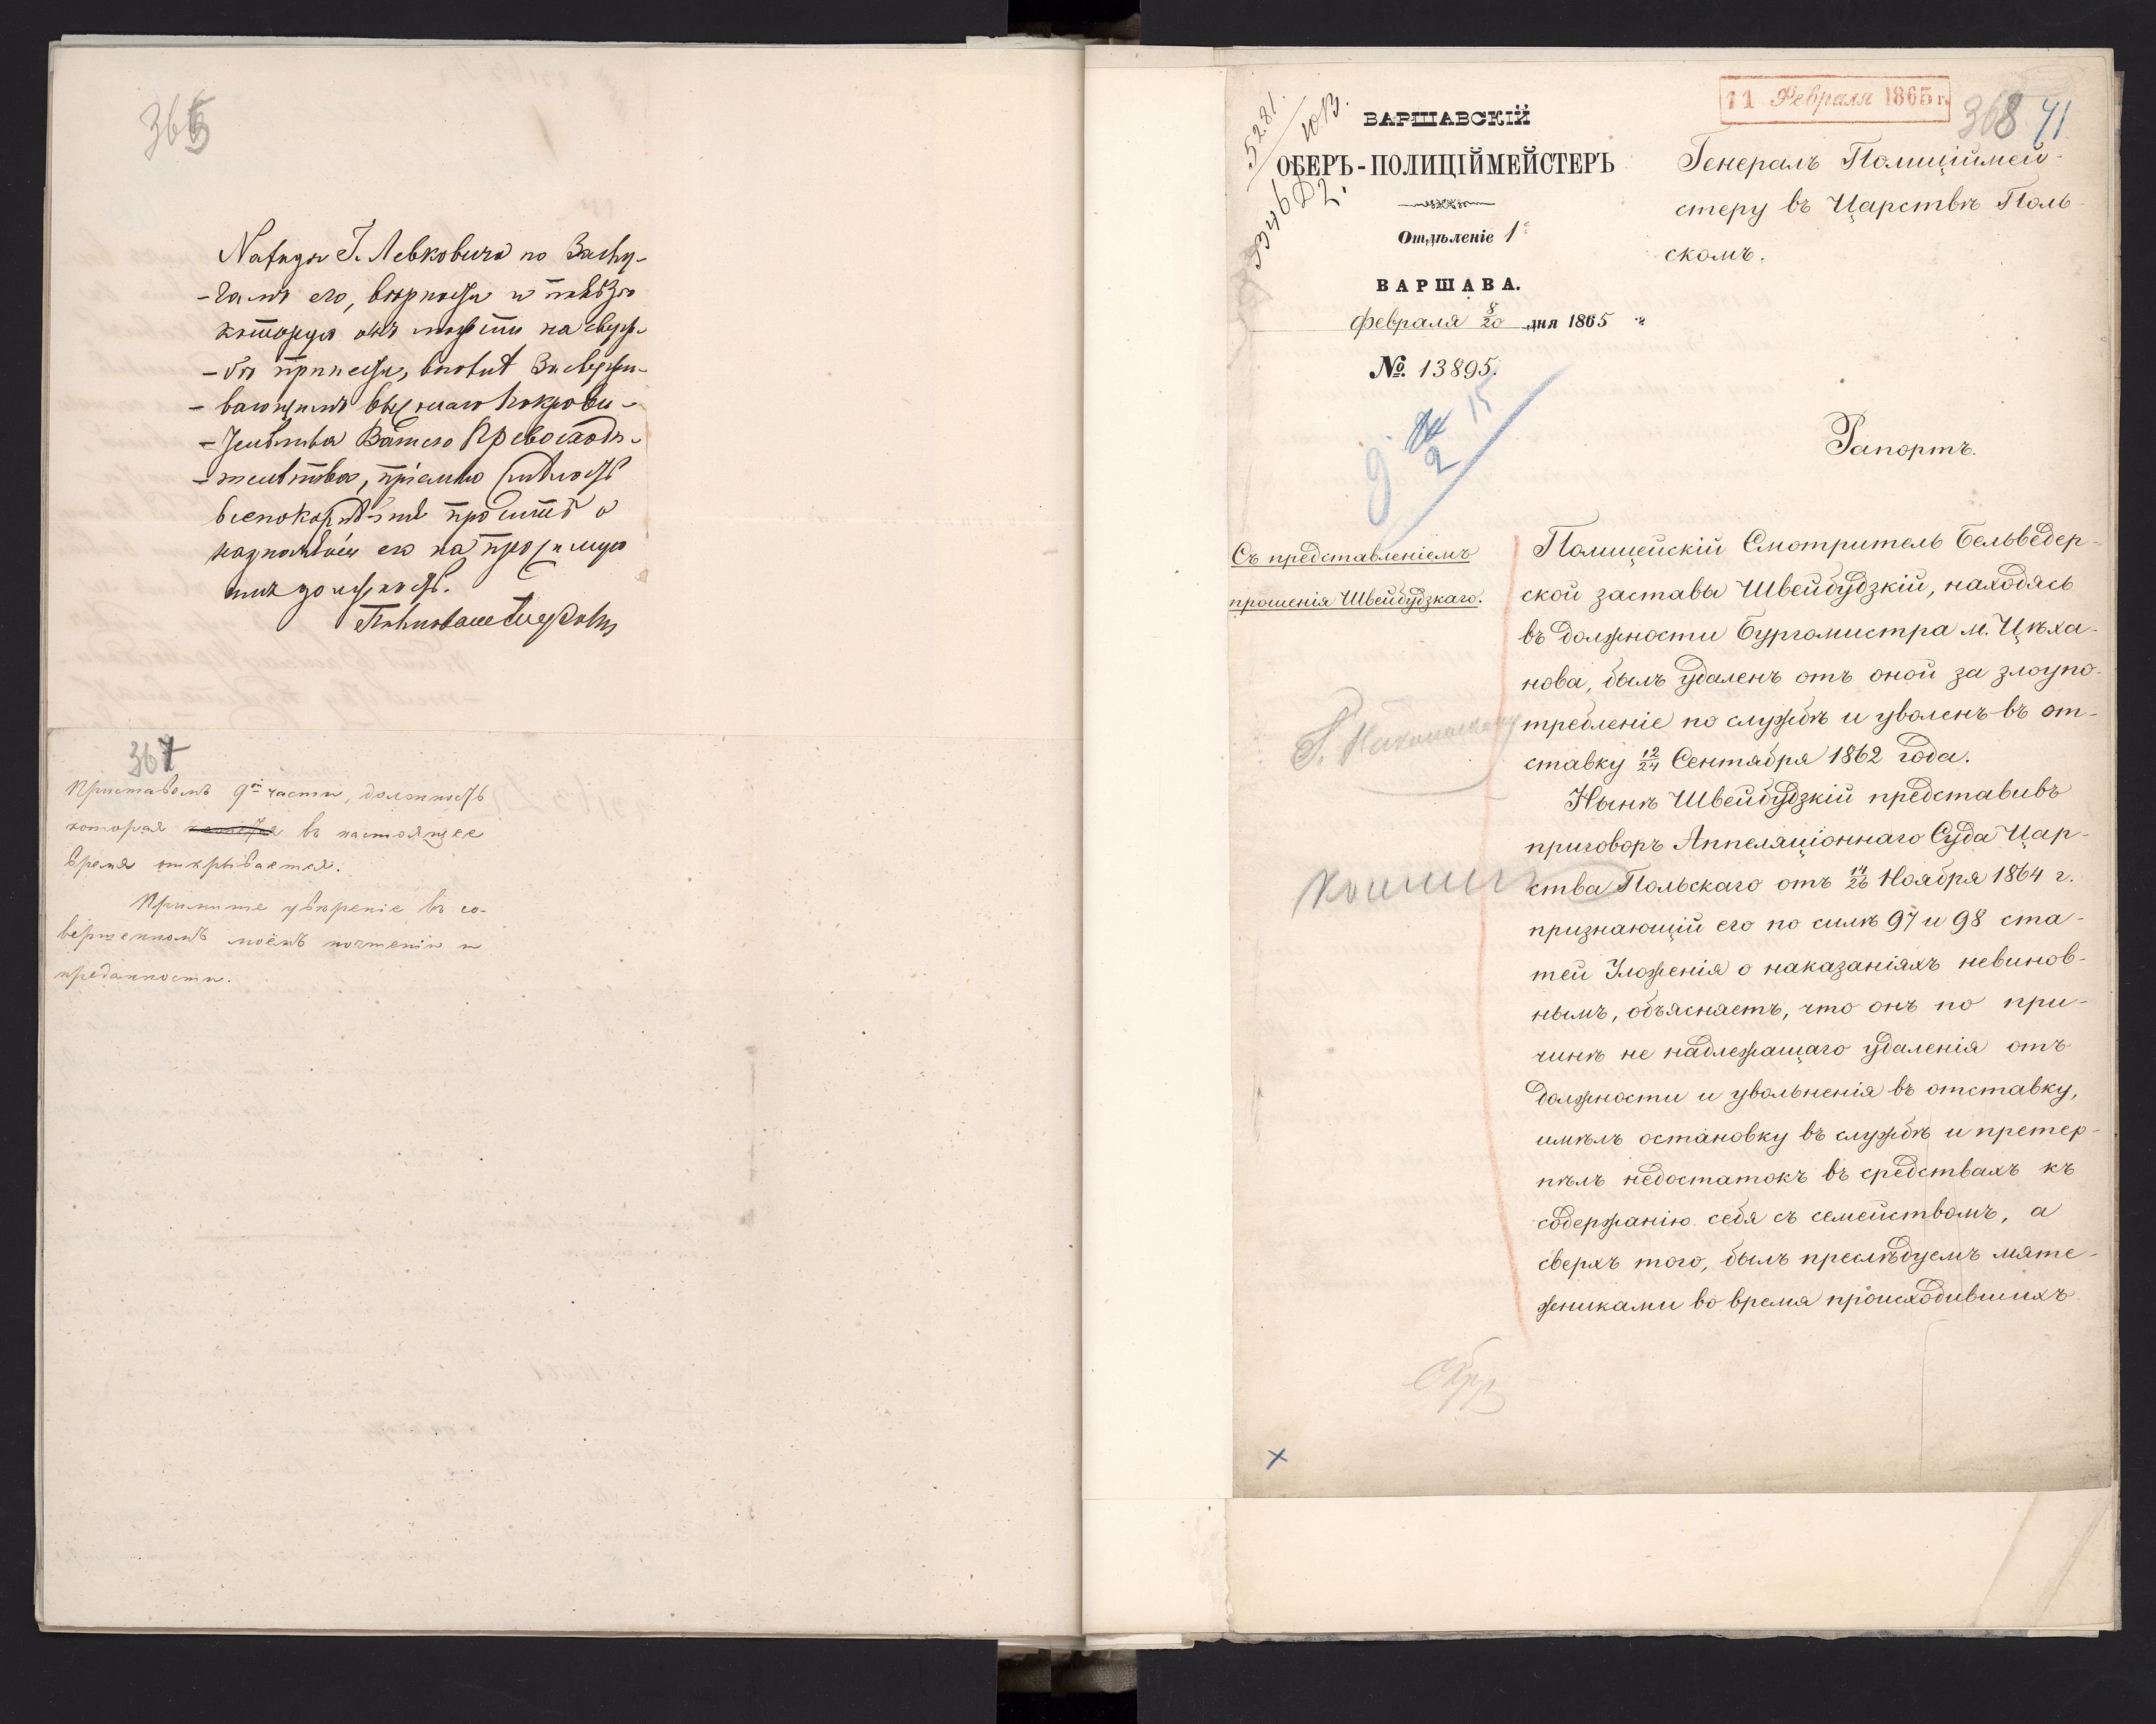 366
Г. Левковича по Заслу-
-гамъ его, вѣрности и
на служ-
-бѣ
Вашего Превосходи-
-тельства, пріемлю смѣлость
всепокорнѣйше просить о
назначеніи его на
должность.
367
Приставомъ 9й части, должность
которая въ настоящее
время открывается.
Примите увѣреніе въ со-
вершенномъ моёмъ почтеніи и
преданности.
11 Февраля 1865 г.
368 71
5281
ВАРШАВСКІЙ
ОБЕРЪ-ПОЛИЦІЙМЕЙСТЕРЪ
Отдѣленіе 1е
ВАРШАВА.
Февраля 8/20 дня 1865
№ 13895.
Генералъ Полиціймей-
стеру въ Царствѣ Поль-
скомъ.
Рапортъ.
Съ представленіемъ
прошенія Швейбудзкаго.
Полицейскій Смотритель Бельведер-
ской заставы Швейбудзкій, находясь
въ должности Бургомистра м. Цѣха-
нова, былъ удаленъ отъ оной за злоупо-
требленіе по службѣ и уволенъ въ от-
ставку 12/24 Сентября 1862 года.
Нынѣ Швейбудзкій представивъ
приговоръ Аппеляціоннаго Суда Цар-
ства Польскаго отъ 14/26 Ноября 1864 г.
признающій его по силѣ 97 и 98 ста-
тей Уложенія о наказаніяхъ невинов-
нымъ, объясняетъ, что онъ по при-
чинѣ не надлежащаго удаленія отъ
должности и увольненія въ отставку,
имѣлъ остановку въ службѣ и претер-
пѣлъ недостатокъ въ средствахъ къ
содержанію себя съ семействомъ, а
сверхъ того, былъ преслѣдуемъ мяте-
жниками во время происходившихъ